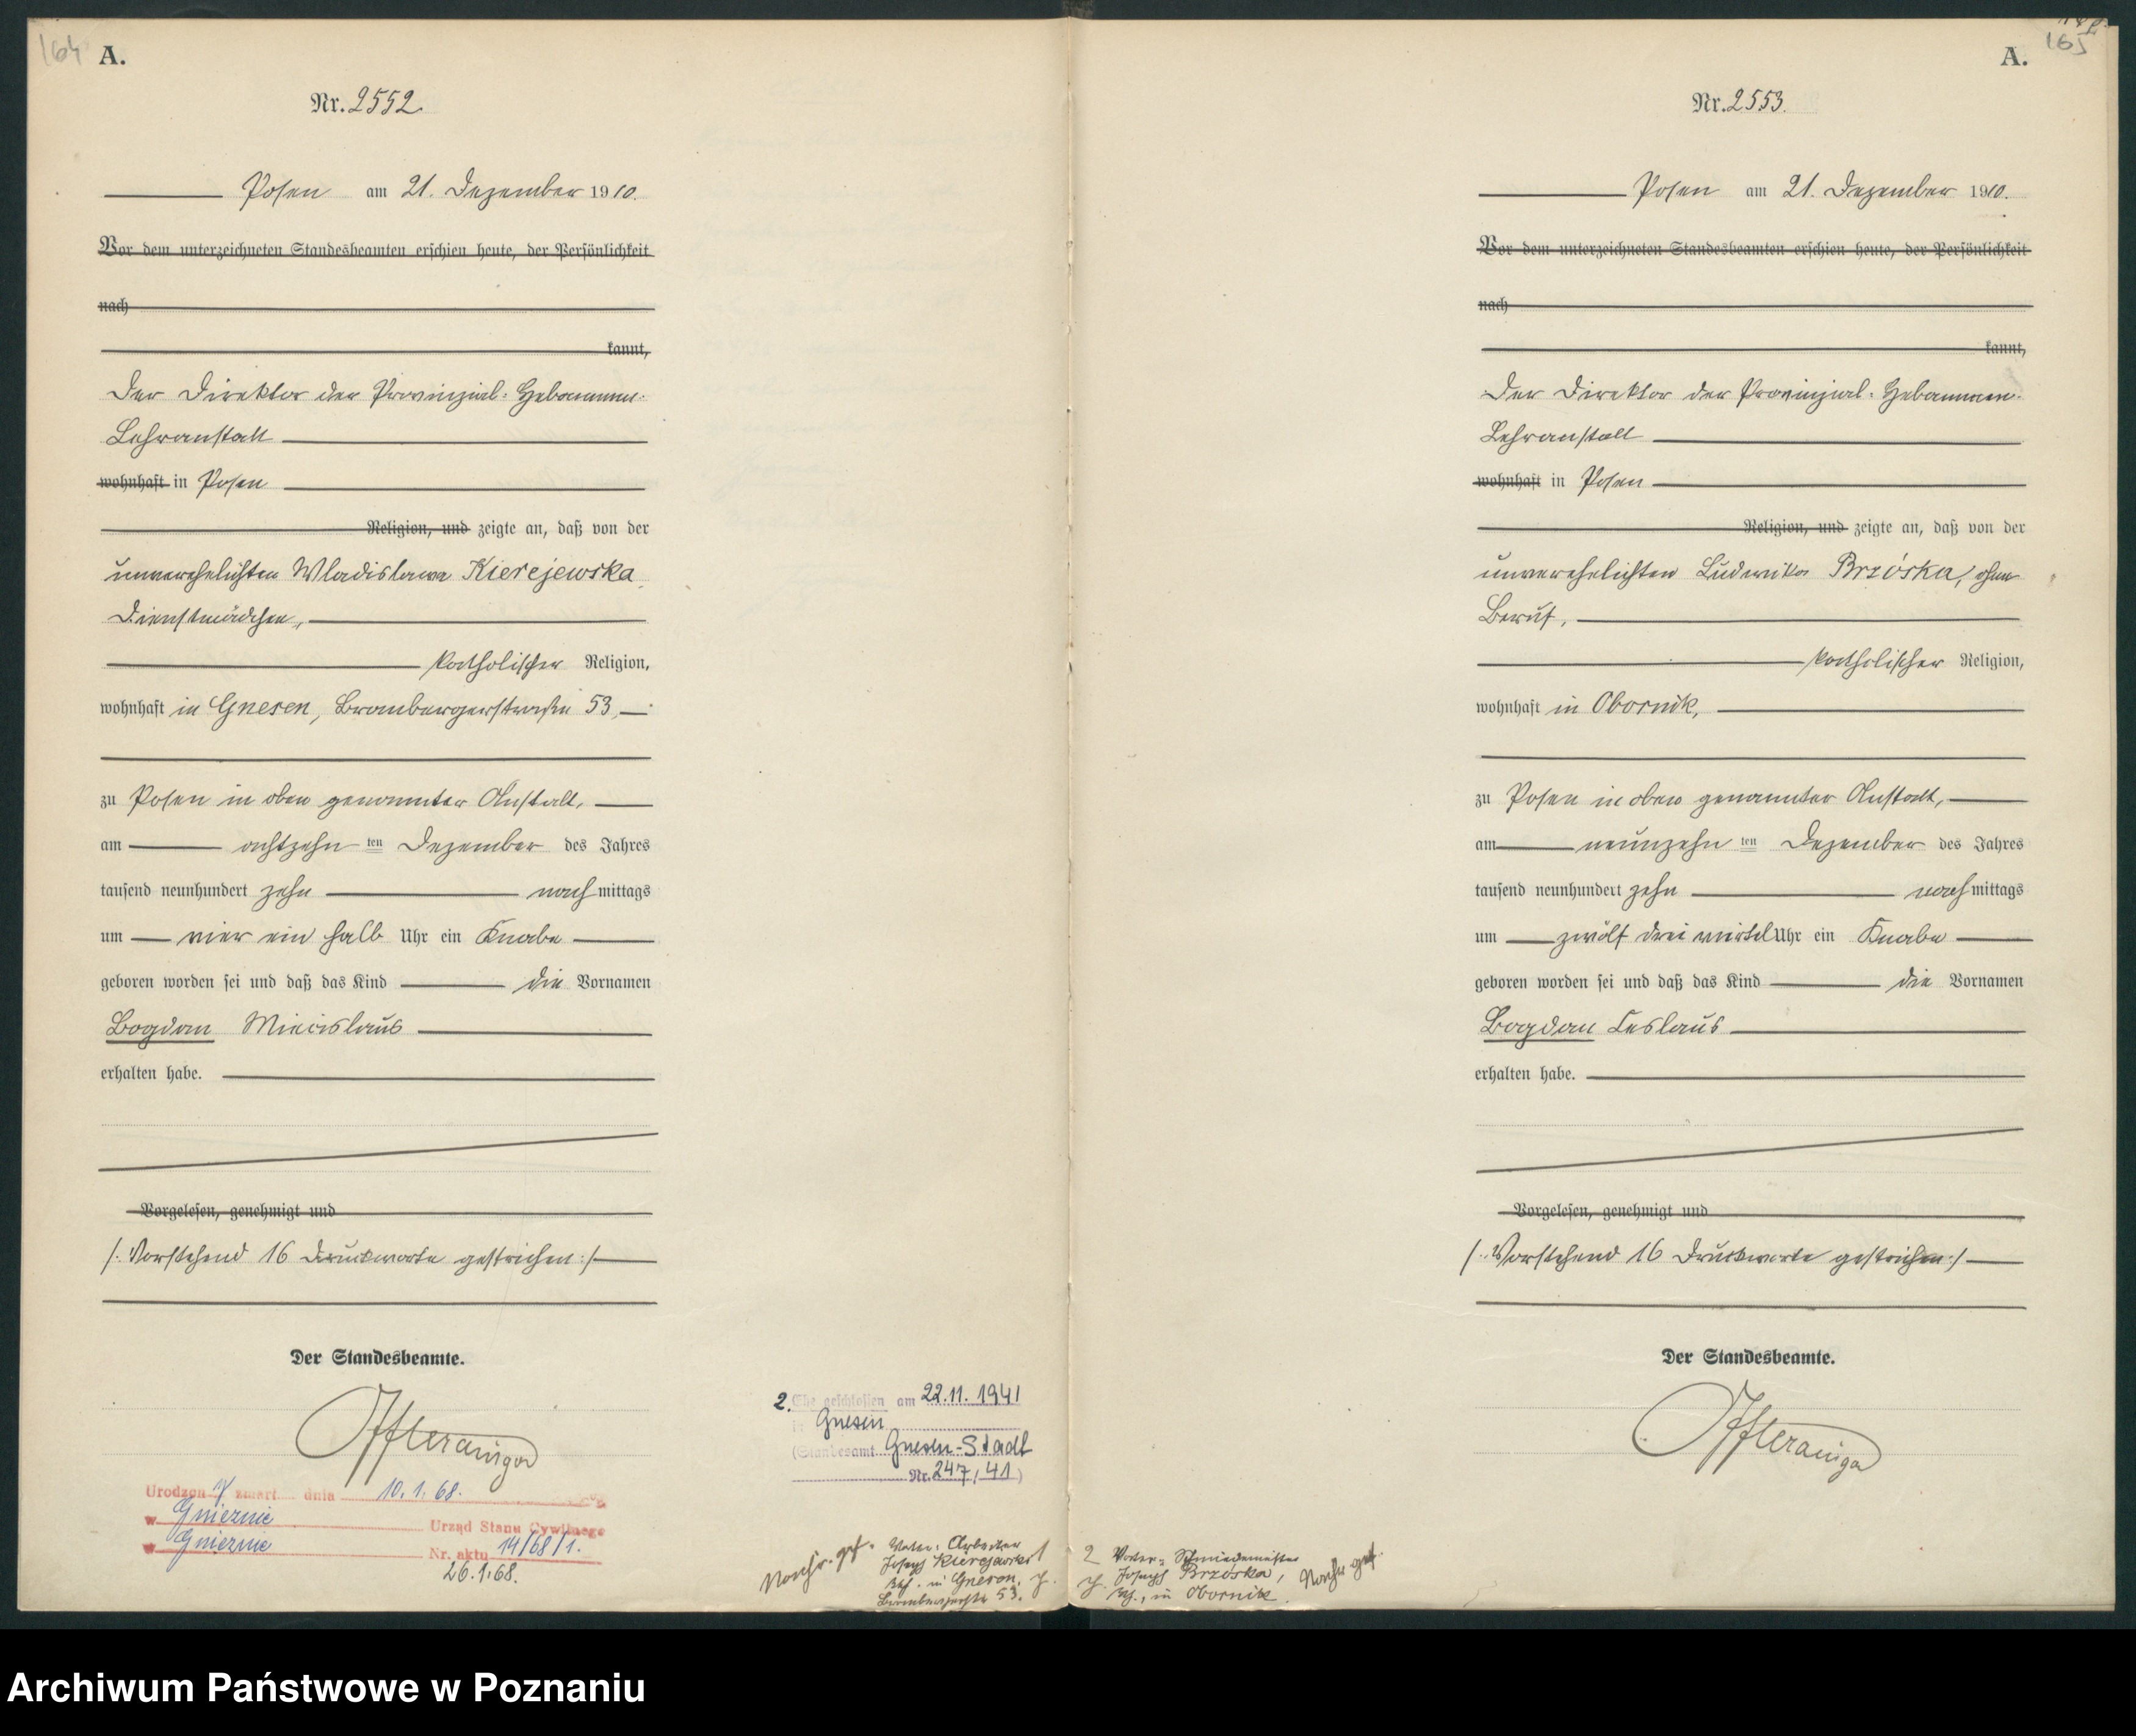 164 A.
Nr. 2552.
Posen am 21. Dezember 1910.
Vor dem unterzeichneten Standesbeamten erschien heute, der Persönlichkeit
nach
kannt,
Der Direktor der Provinzial-Hebammen-
Lehranstalt
wohnhaft in Posen
Religion, und zeigte an, daß von der
unverehelichten Wladislawa Kierejewska,
Dienstmädchen,
katholischer Religion,
wohnhaft in Gnesen, Brombergerstraße 53,
zu Posen in oben genannter Anstalt,
am achtzehn ten Dezember des Jahres
tausend neunhundert zehn nachmittags
um vier ein halb Uhr ein Knabe
geboren worden sei und daß das Kind die Vornamen
Bogdan Miecislaus
erhalten habe.
Vorgelesen, genehmigt und
/: Vorstehend 16 Druckworte gestrichen :/
Der Standesbeamte.
Urodzon zmarł dnia 10.1.68.
w Gnieznie
Urząd Stanu Cywilnego
w Gnieznie Nr. aktu 14/68/1.
26.1.68.
2. Ehe geschlossen am 22.11.1941
in Gnesen
(Standesamt Gnesen-Stadt
Nr. 247/41)
Vater: Arbeiter
Josef Kierejewski
in Gnesen,
Brombergerstr 53.
165
A.
Nr. 2553.
Posen am 21. Dezember 1910.
Vor dem unterzeichneten Standesbeamten erschien heute, der Persönlichkeit
nach
kannt,
Der Direktor der Provinzial-Hebammen-
Lehranstalt
wohnhaft in Posen
Religion, und zeigte an, daß von der
unverehelichten Ludwika Brzóska, ohne
Beruf,
katholischer Religion,
wohnhaft in Obornik,
zu Posen in oben genannter Anstalt,
am neunzehn ten Dezember des Jahres
tausend neunhundert zehn nachmittags
um zwölf drei viertel Uhr ein Knabe
geboren worden sei und daß das Kind die Vornamen
Bogdan Ceslaus
erhalten habe.
Vorgelesen, genehmigt und
/: Vorstehend 16 Druckworte gestrichen :/
Der Standesbeamte.
2 Vater: Schmiedemeister
Josef Brzóska,
in Obornik.
Archiwum Państwowe w Poznaniu